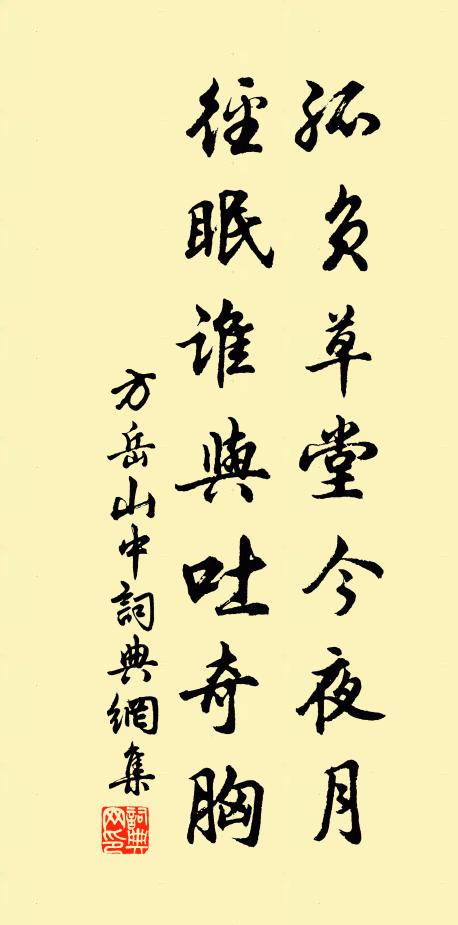 孤負草堂今夜月
徑眠誰與吐奇胸
方岳山中詞典網集
詞典網印